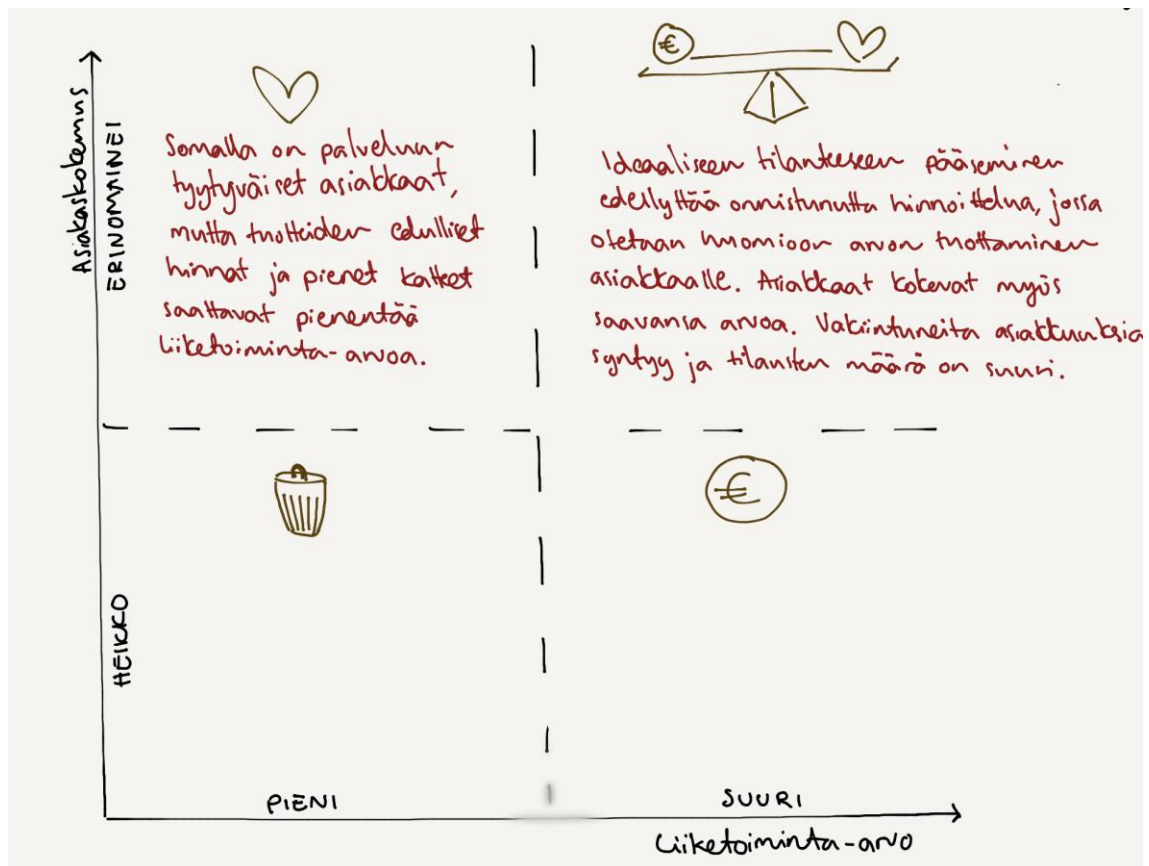 Asiakaskokemus
ERINOMAINEI
HEIKKO
€
Somalla on palveluun
tyytyväiset asiakkaat,
mutta tuotteiden edulliset
hinnat ja pienet katteet
saattavat pienentää
liiketoiminta-arvoa.
€
Ideaaliseen tilanteeseen pääseminen
edellyttää onnistunutta hinnoittelua, jossa
otetaan huomioon arvon tuottaminen
asiakkaalle. Asiakkaat kokevat myös
saavansa arvoa. Vakiintuneita asiakkuuksia
syntyy ja tilausten määrä on suuri.
PIENI
SUURI
Liiketoiminta-arvo